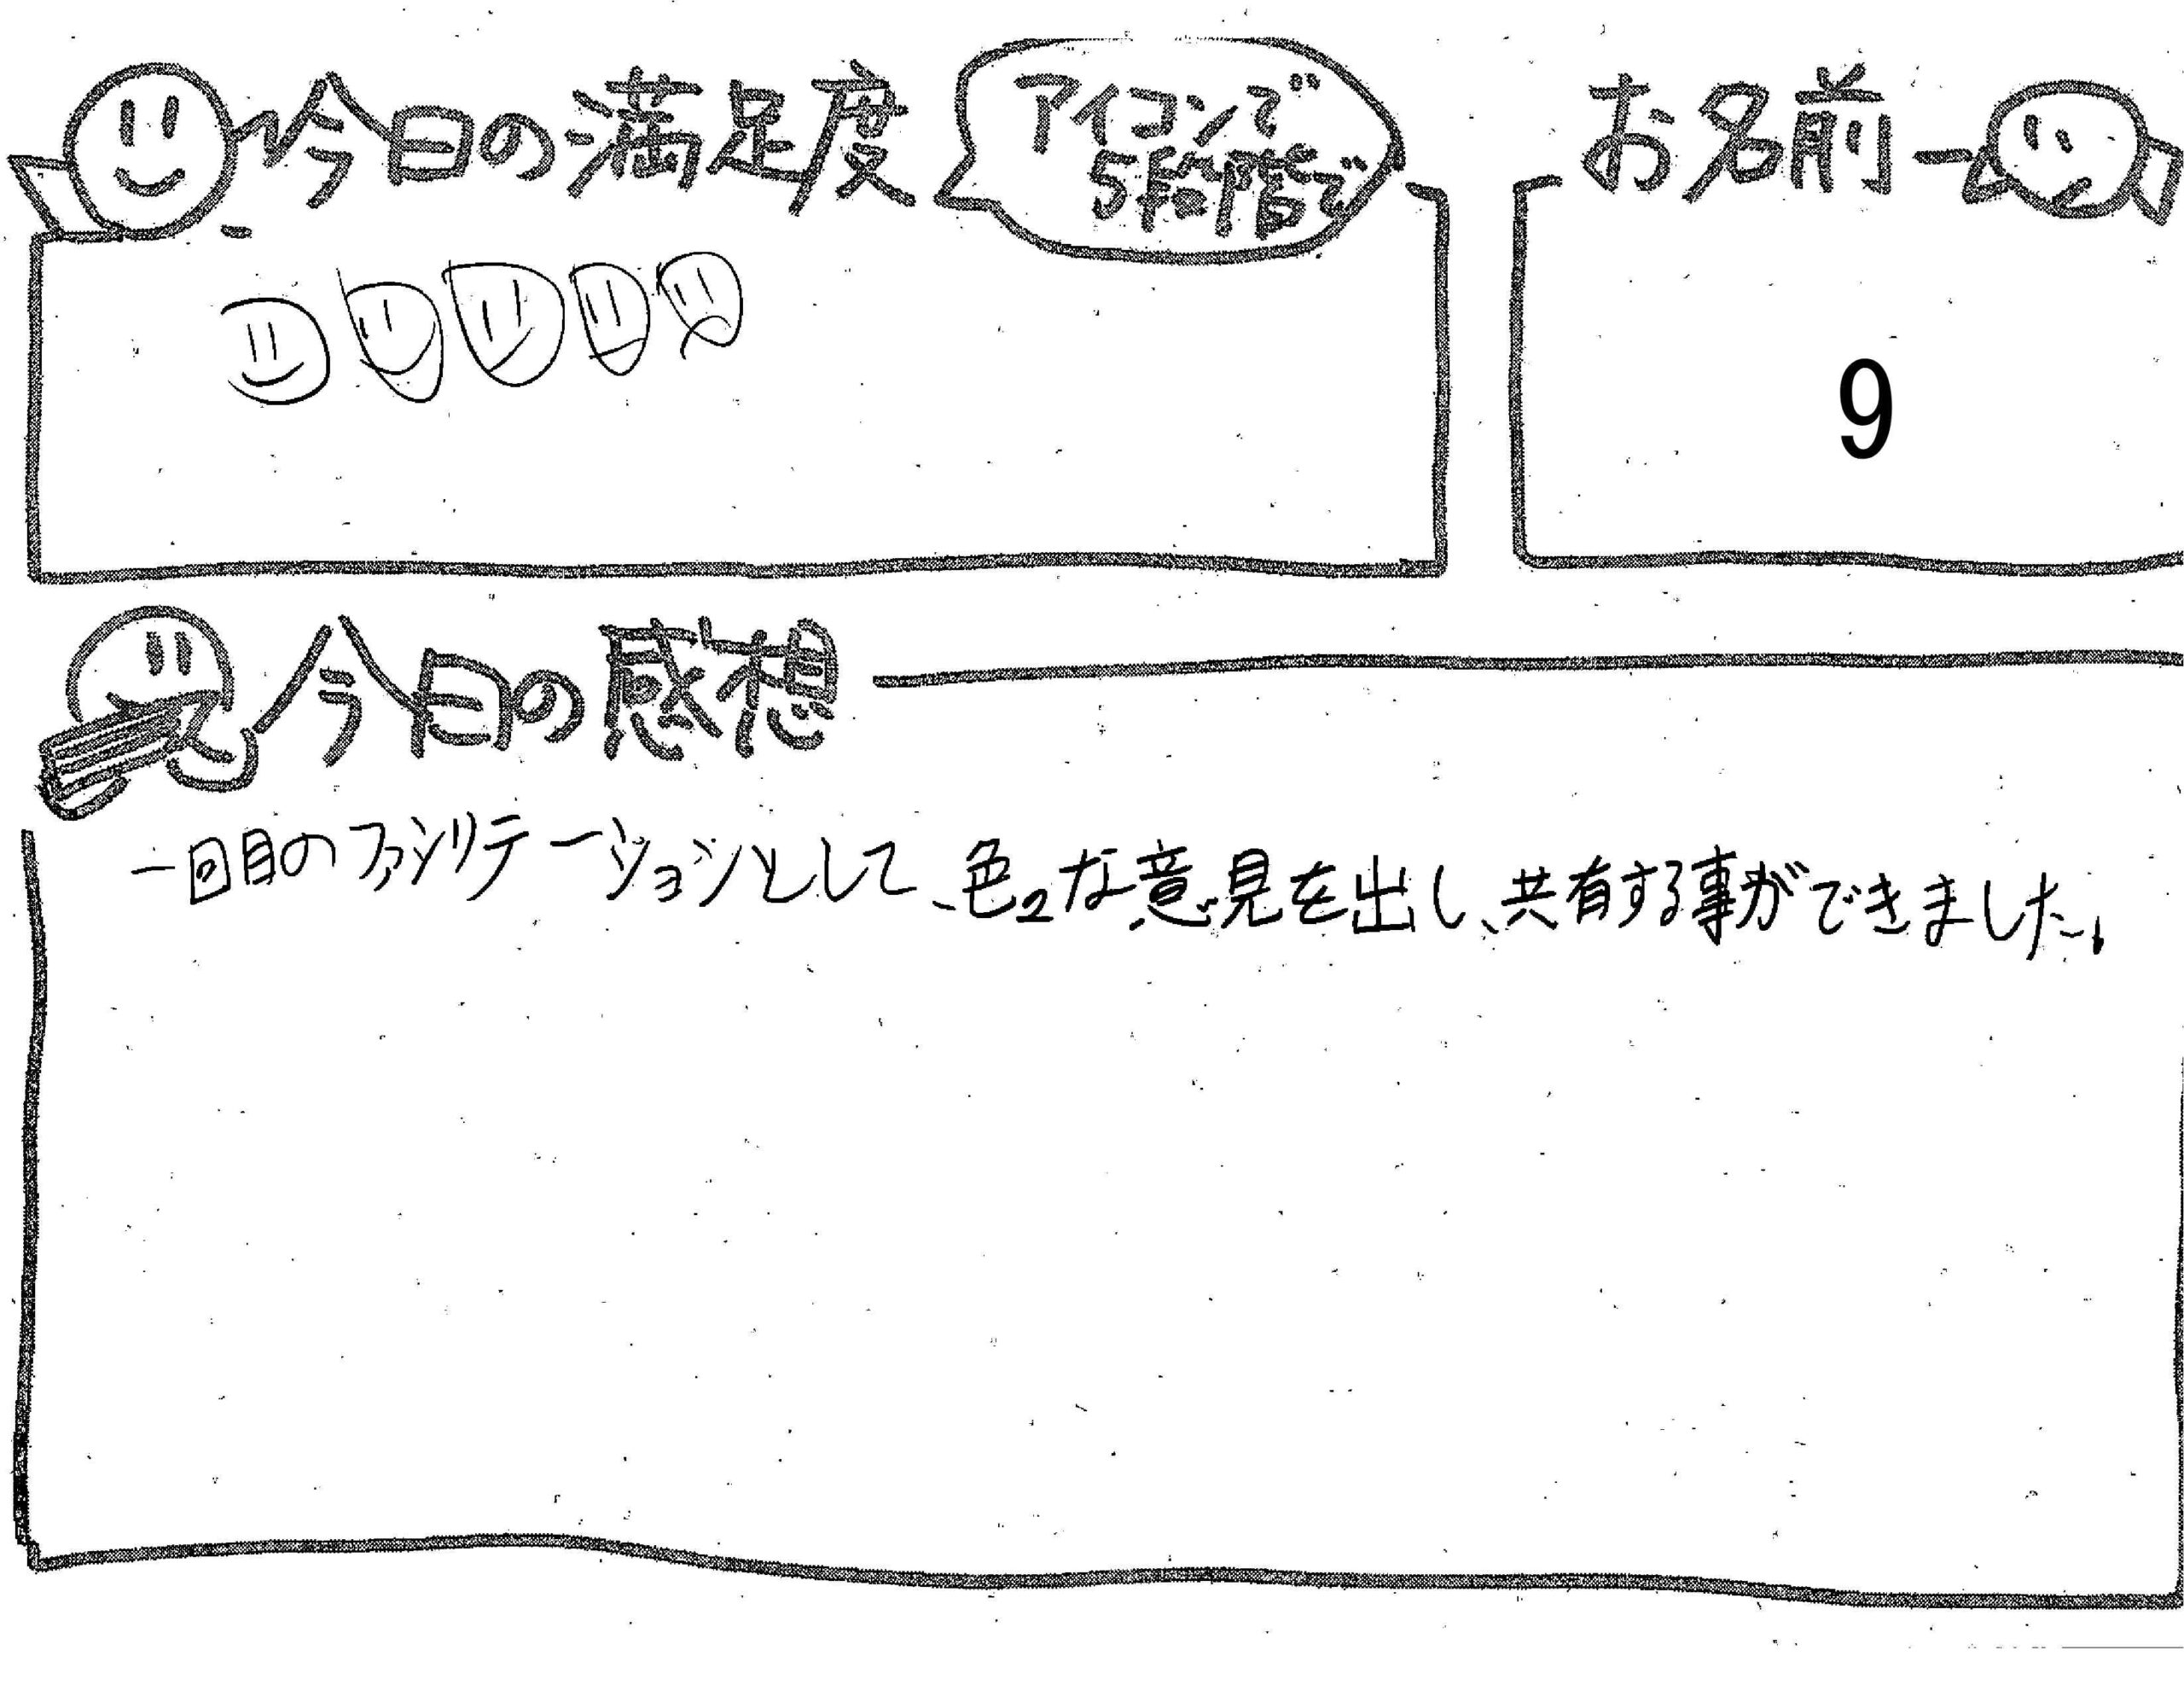 今日の満足度
アイコンで
5段階で
お名前
9
今日の感想
一回目のファシリテーションとして、色々な意見を出し、共有する事ができました。